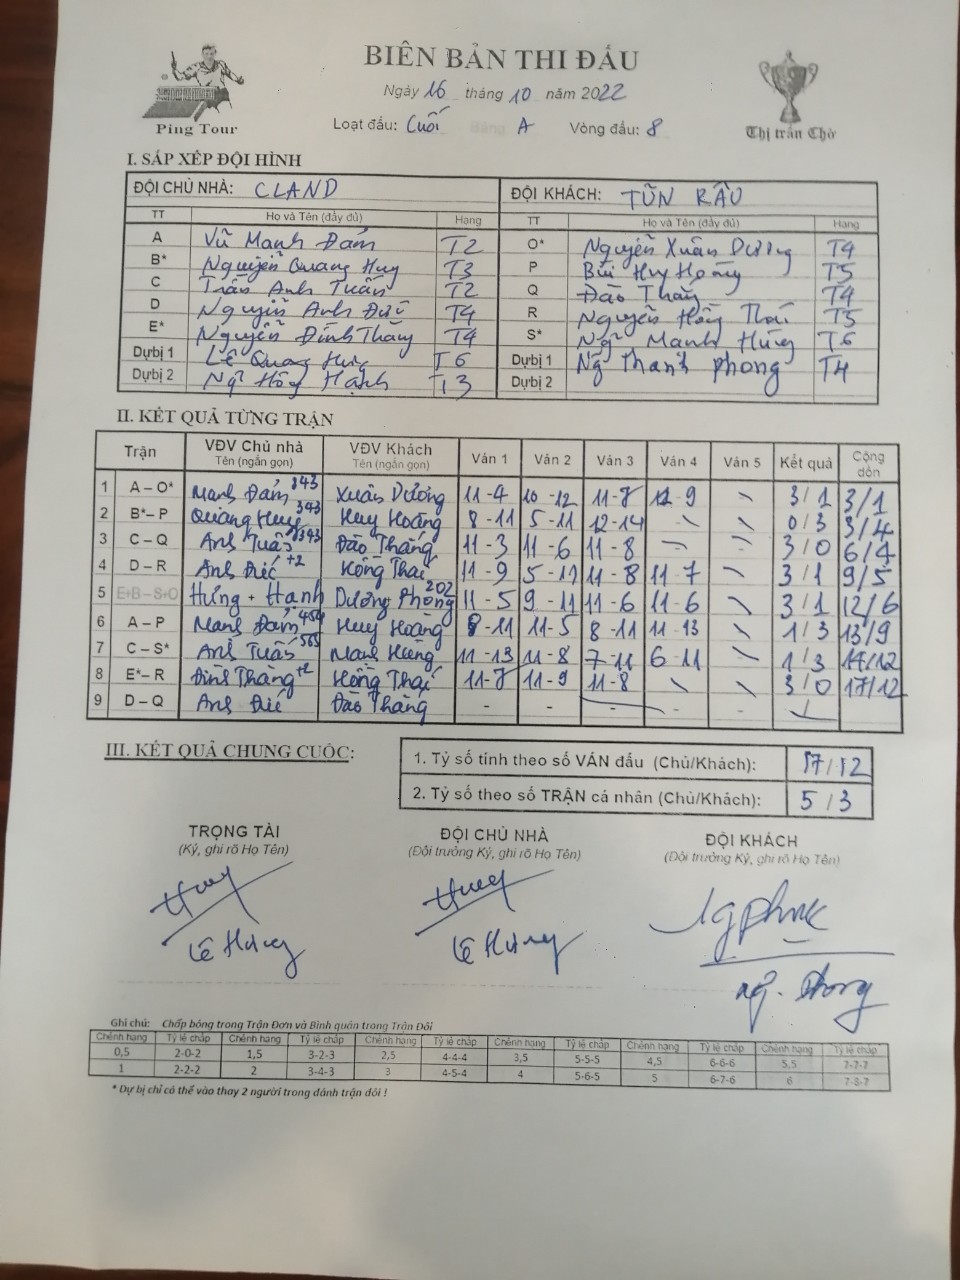 BIÊN BẢN THI ĐẤU
Ngày 16 tháng 10 năm 2022
Ping Tour
Loạt đấu: Cuối Bảng A Vòng đấu: 8
Thị trấn Chờ
I. SẮP XẾP ĐỘI HÌNH
ĐỘI CHỦ NHÀ: CLAND ĐỘI KHÁCH: TŨN RẦU
TT Họ và Tên (đầy đủ) Hạng TT Họ và Tên (đầy đủ) Hạng
A Vũ Mạnh Đảm T2 O* Nguyễn Xuân Dương T4
B* Nguyễn Quang Huy T3 P Bùi Huy Hoàng T5
C Trần Anh Tuấn T2 Q Đào Thắng T4
D Nguyễn Anh Đức T4 R Nguyễn Hồng Thái T5
E* Nguyễn Đình Thắng T4 S* Ng Mạnh Hùng T6
Dự bị 1 Lê Quang Hưng T6 Dự bị 1 Ng Thanh Phong T4
Dự bị 2 Ng Hồng Hạnh T3 Dự bị 2
II. KẾT QUẢ TỪNG TRẬN
Trận VĐV Chủ nhà VĐV Khách Ván 1 Ván 2 Ván 3 Ván 4 Ván 5 Kết quả Cộng dồn
Tên (ngắn gọn) Tên (ngắn gọn)
1 A – O* Mạnh Đảm 343 Xuân Dương 11-4 10-12 11-8 12-9 \ 3/1 3/1
2 B* – P Quang Huy 343 Huy Hoàng 8-11 5-11 12-14 \ \ 0/3 3/4
3 C – Q Anh Tuấn 343 Đào Thắng 11-3 11-6 11-8 \ \ 3/0 6/4
4 D – R Anh Đức +2 Hồng Thái 11-9 5-11 11-8 11-7 \ 3/1 9/5
5 E+B – S+O Hưng + Hạnh Dương Phong 202 11-5 9-11 11-6 11-6 \ 3/1 12/6
6 A – P Mạnh Đảm 454 Huy Hoàng 8-11 11-5 8-11 11-13 \ 1/3 13/9
7 C – S* Anh Tuấn 565 Mạnh Hùng 11-13 11-8 7-11 6-11 - 1/3 14/12
8 E* – R Đình Thắng +2 Hồng Thái 11-7 11-9 11-8 \ \ 3/0 17/12
9 D – Q Anh Đức Đào Thắng - - - - - /
III. KẾT QUẢ CHUNG CUỘC:
1. Tỷ số tính theo số VÁN đấu (Chủ/Khách): 17/12
2. Tỷ số theo số TRẬN cá nhân (Chủ/Khách): 5/3
TRỌNG TÀI ĐỘI CHỦ NHÀ ĐỘI KHÁCH
(Ký, ghi rõ Họ Tên) (Đội trưởng Ký, ghi rõ Họ Tên) (Đội trưởng Ký, ghi rõ Họ Tên)
Lê Hưng Lê Hưng Ng. Phong
Ghi chú: Chấp bóng trong Trận Đơn và Bình quân trong Trận Đôi
Chênh hạng Tỷ lệ chấp Chênh hạng Tỷ lệ chấp Chênh hạng Tỷ lệ chấp Chênh hạng Tỷ lệ chấp Chênh hạng Tỷ lệ chấp Chênh hạng Tỷ lệ chấp
0,5 2-0-2 1,5 3-2-3 2,5 4-4-4 3,5 5-5-5 4,5 6-6-6 5,5 7-7-7
1 2-2-2 2 3-4-3 3 4-5-4 4 5-6-5 5 6-7-6 6 7-8-7
* Dự bị chỉ có thể vào thay 2 người trong đánh trận đôi !